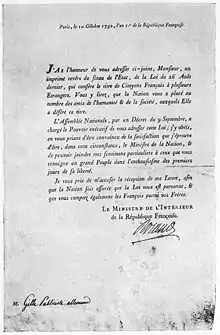 Paris, le 10 Octobre 1792, l'an 1er de la République Françoise.
J'AI l'honneur de vous adresser ci-joint, Monsieur, un
imprimé revêtu du sceau de l'État, de la Loi du 26 Août
dernier, qui confère le titre de Citoyens François à plusieurs
Étrangers. Vous y lirez, que la Nation vous a placé au
nombre des amis de l'humanité & de la société, auxquels Elle
a déféré ce titre.
L'Assemblée Nationale, par un Décret du 9 Septembre, a
chargé le Pouvoir exécutif de vous adresser cette Loi ; j'y obéis,
en vous priant d'être convaincu de la satisfaction que j'éprouve
d'être, dans cette circonstance, le Ministre de la Nation, &
de pouvoir joindre mes sentimens particuliers à ceux que vous
témoigne un grand Peuple dans l'enthousiasme des premiers
jours de sa liberté.
Je vous prie de m'accuser la réception de ma Lettre, afin
que la Nation soit assurée que la Loi vous est parvenue, &
que vous comptez également les François parmi vos Frères.
LE MINISTRE DE L'INTÉRIEUR
de la République Françoise.
M. Gille Publiciste allemand